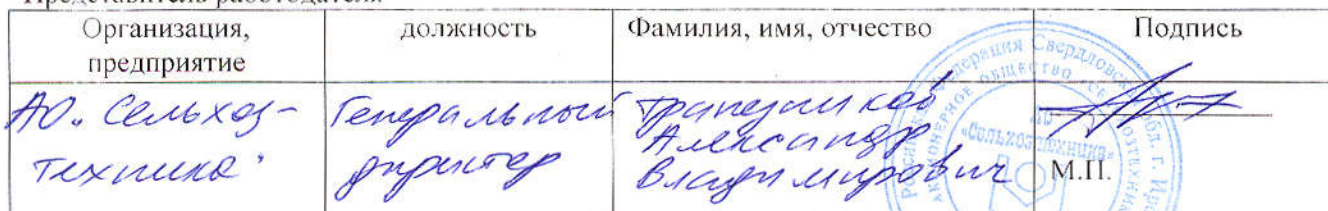 Представитель работодателя
Организация, предприятие
должность
Фамилия, имя, отчество
Подпись
АО "Сельхоз-
техника"
Генеральный
директор
Трапезников
Александр
Владимирович
М.П.
Российская Федерация Свердловская обл. г. Ир
АКЦИОНЕРНОЕ ОБЩЕСТВО
АО
«Сельхозтехника»